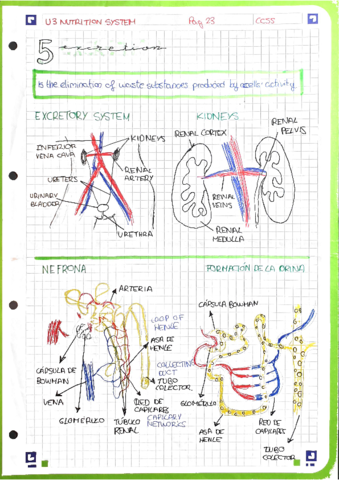 U3 NUTRITION SYSTEM Pag 23 CCSS
5 excretion
Is the elimination of waste substances produced by activity.
EXCRETORY SYSTEM KIDNEYS
KIDNEYS
INFERIOR VENA CAVA
RENAL ARTERY
URETERS
URINARY BLADDER
URETHRA
RENAL CORTEX
RENAL PELVIS
RENAL VEINS
RENAL MEDULLA
NEFRONA
ARTERIA
LOOP OF HENLE
ASA DE HENLE
COLLECTING DUCT
TUBO COLECTOR
CÁPSULA DE BOWMAN
VENA
GLOMERULO
TÚBULO RENAL
RED DE CAPILARES
CAPILARY NETWORKS
FORMACIÓN DE LA ORINA
CÁPSULA BOWMAN
GLOMÉRULO
ASA DE HENLE
RED DE CAPILARES
TUBO COLECTOR